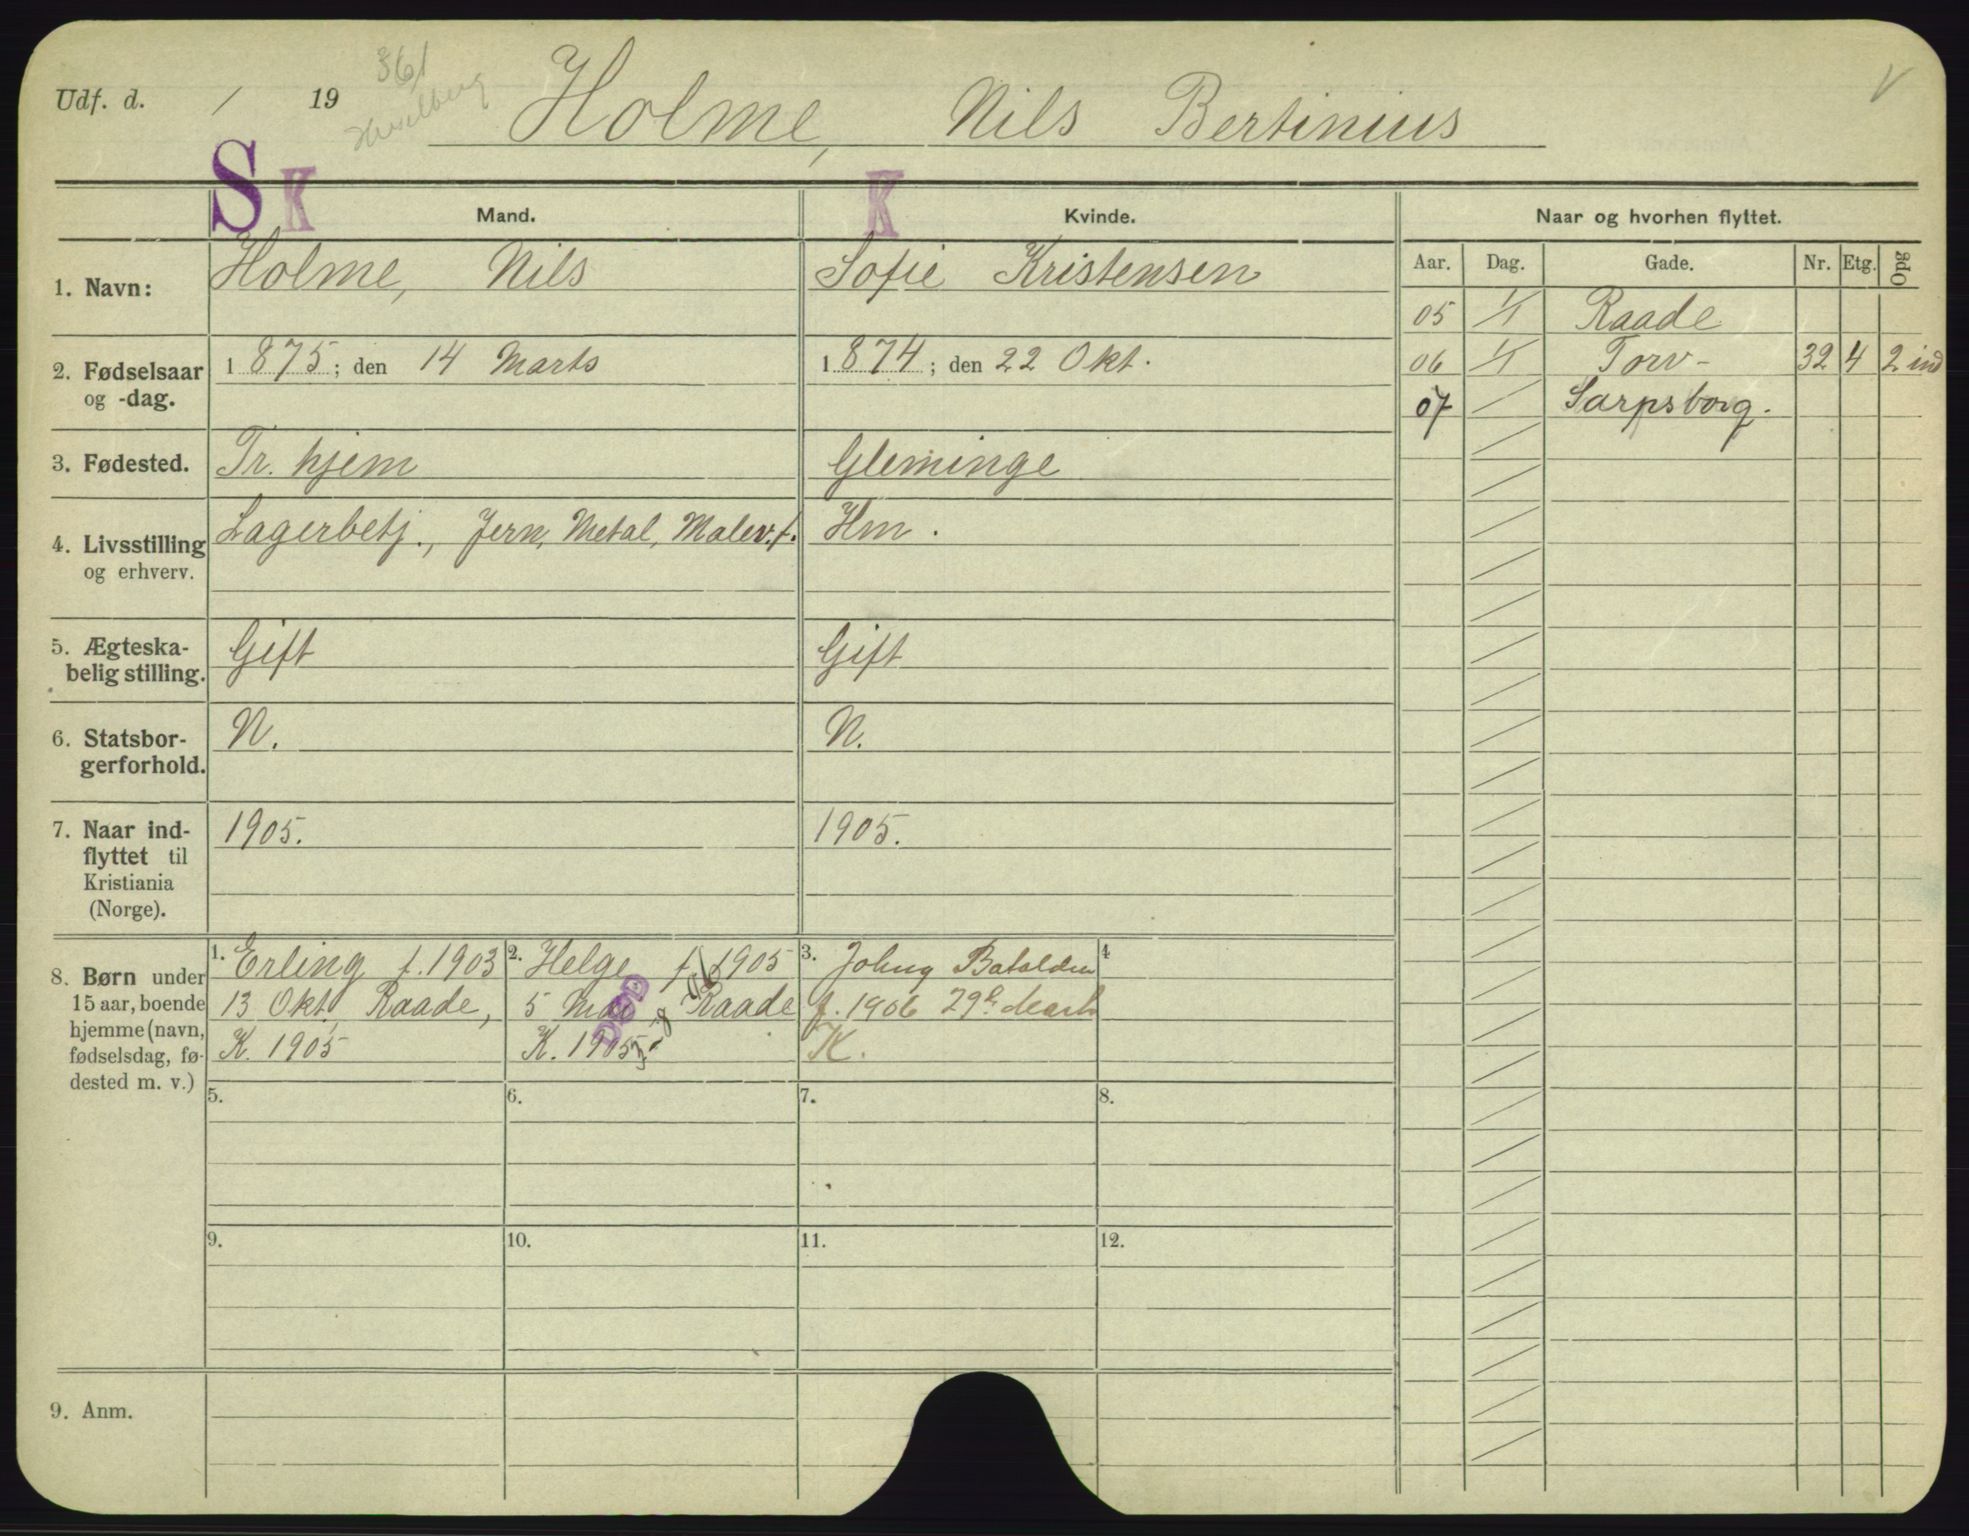 361
Udf. d. / 19 Holme, Nils Bertinius V
S K K
Mand. Kvinde. Naar og hvorhen flyttet.
Aar. Dag. Gade. Nr. Etg. Opg
1. Navn: Holme, Nils Sofie Kristensen
05 1/1 Raade
2. Fødselsaar og -dag. 1875; den 14 Marts 1874; den 22 Okt.
06 1/1 Torv- 32 4 2 ind
07 / Sarpsborg.
3. Fødested. Tr. hjem Gleminge
4. Livsstilling og erhverv. Lagerbetj., Jern, Metal, Malerv.f. Hm.
5. Ægteska-
belig stilling. Gift Gift
6. Statsbor-
gerforhold. N. N.
7. Naar ind-
flyttet til
Kristiania
(Norge). 1905. 1905.
8. Børn under
15 aar, boende
hjemme (navn,
fødselsdag, fø-
dested m. v.)
1. Erling f. 1903
13 Okt. Raade,
K. 1905
2. Helge f. 1905
5 Mai Raade
K. 1905
DØD
3. Johny Batalden
f. 1906 29de Marts
K.
4
5. 6. 7. 8.
9. 10. 11. 12.
9. Anm.